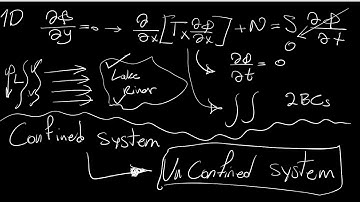 1D ∂Φ/∂y = 0 → ∂/∂x [Tx ∂Φ/∂x] + N = S ∂Φ/∂t
0
∂Φ/∂t = 0
Lake
River
∫∫ 2BCs
Confined system
UnConfined system